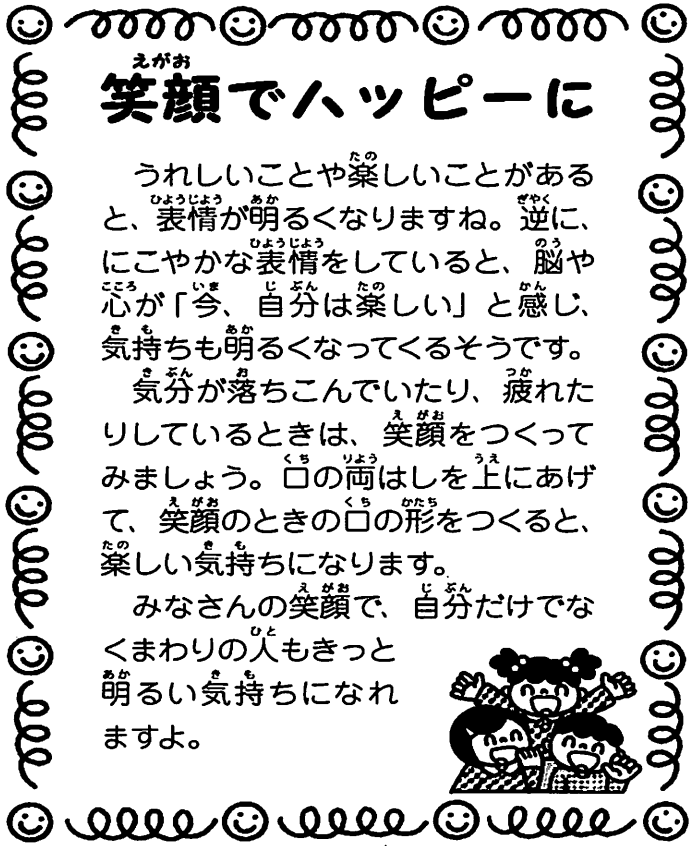 笑顔でハッピーに
うれしいことや楽しいことがある
と、表情が明るくなりますね。逆に、
にこやかな表情をしていると、脳や
心が「今、自分は楽しい」と感じ、
気持ちも明るくなってくるそうです。
気分が落ちこんでいたり、疲れた
りしているときは、笑顔をつくって
みましょう。口の両はしを上にあげ
て、笑顔のときの口の形をつくると、
楽しい気持ちになります。
みなさんの笑顔で、自分だけでな
くまわりの人もきっと
明るい気持ちになれ
ますよ。